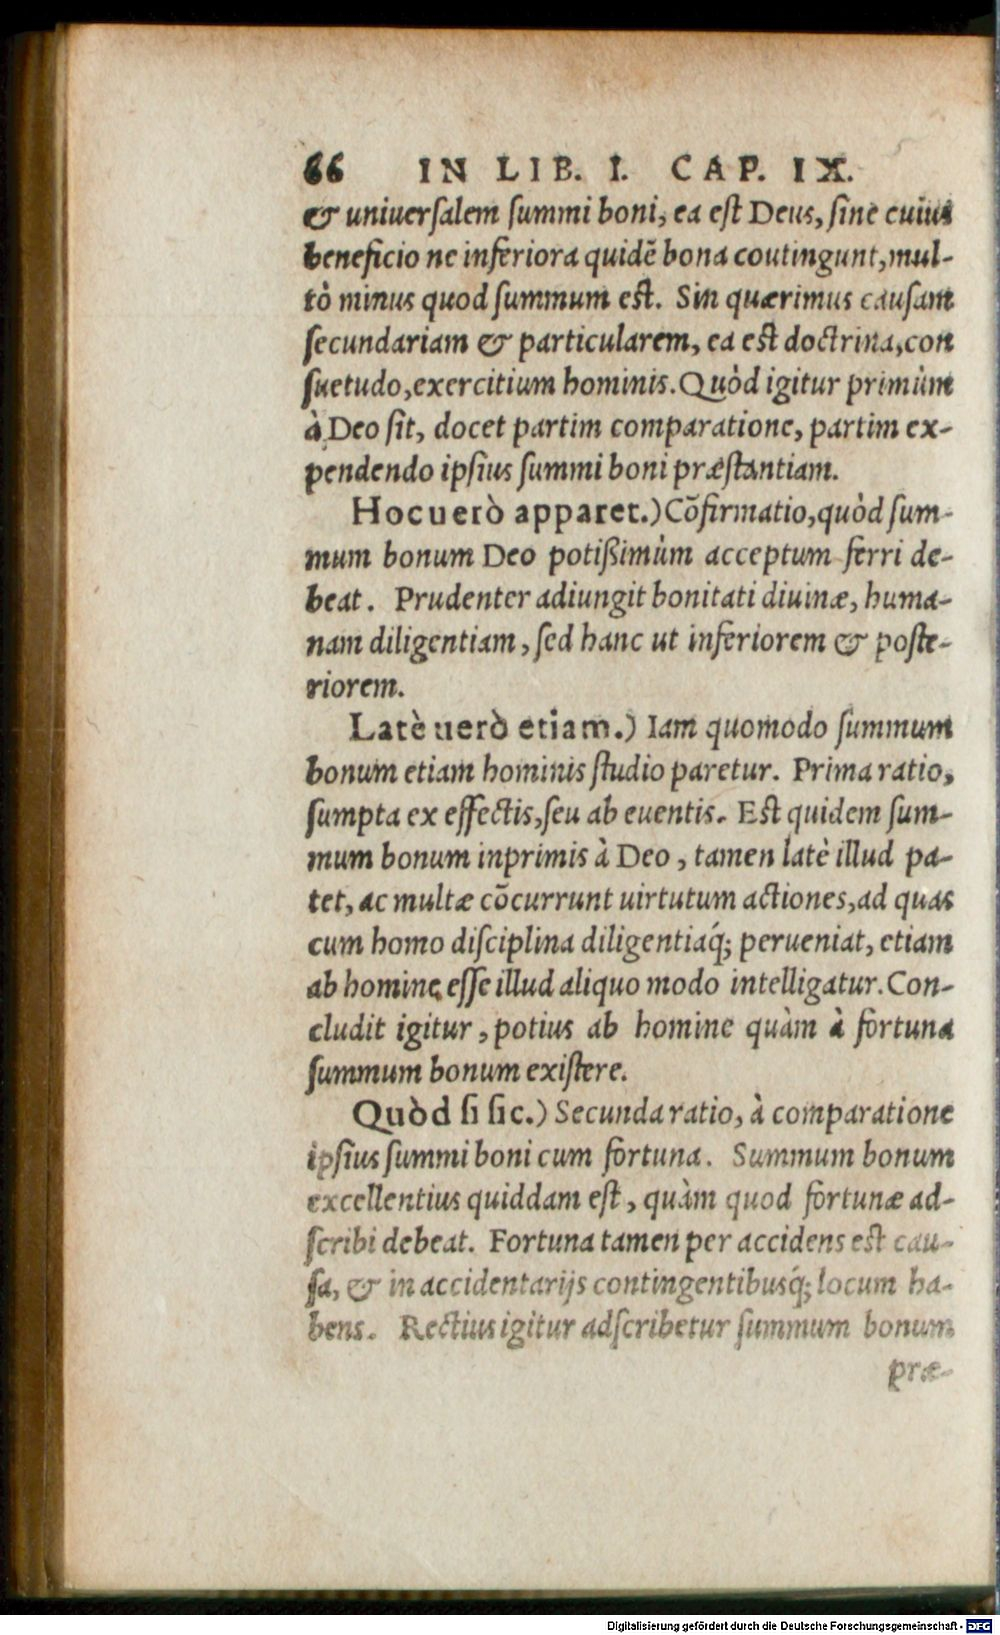 66 IN LIB. I. CAP. IX.
& uniuerſalem ſummi boni, ea eſt Deus, ſine cuius
beneficio ne inferiora quidē bona coutingunt, mul-
tò minus quod ſummum eſt. Sin quærimus cauſam
ſecundariam & particularem, ea eſt doctrina, con
ſuetudo, exercitium hominis. Quòd igitur primùm
à Deo ſit, docet partim comparatione, partim ex-
pendendo ipſius ſummi boni præſtantiam.
Hoc uerò apparet.) Cōfirmatio, quòd ſum-
mum bonum Deo potiſſimùm acceptum ferri de-
beat. Prudenter adiungit bonitati diuinæ, huma-
nam diligentiam, ſed hanc ut inferiorem & poſte-
riorem.
Latè uerò etiam.) Iam quomodo ſummum
bonum etiam hominis ſtudio paretur. Prima ratio,
ſumpta ex effectis, ſeu ab euentis. Eſt quidem ſum-
mum bonum inprimis à Deo, tamen latè illud pa-
tet, ac multæ cōcurrunt uirtutum actiones, ad quas
cum homo diſciplina diligentiaq́; perueniat, etiam
ab homine eſſe illud aliquo modo intelligatur. Con-
cludit igitur, potius ab homine quàm à fortuna
ſummum bonum exiſtere.
Quòd ſi ſic.) Secunda ratio, à comparatione
ipſius ſummi boni cum fortuna. Summum bonum
excellentius quiddam eſt, quàm quod fortunæ ad-
ſcribi debeat. Fortuna tamen per accidens eſt cau-
ſa, & in accidentarijs contingentibusq́; locum ha-
bens. Rectius igitur adſcribetur ſummum bonum
præ-
Digitalisierung gefördert durch die Deutsche Forschungsgemeinschaft - DFG